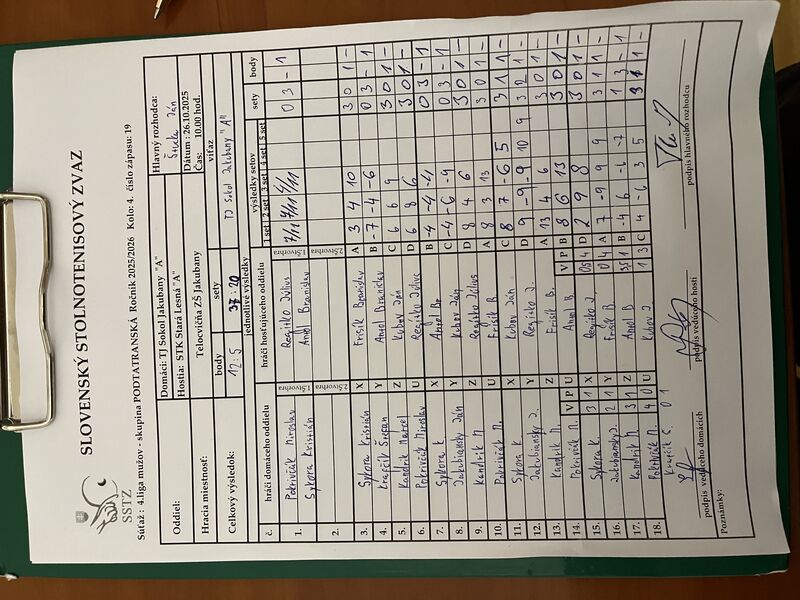 SLOVENSKÝ STOLNOTENISOVÝ ZVAZ
SSTZ
Súťaž : 4.liga mužov - skupina PODTATRANSKÁ Ročník 2025/2026 Kolo: 4. číslo zápasu: 19
Oddiel: Domáci: TJ Sokol Jakubany "A" Hlavný rozhodca:
Hostia: STK Stará Lesná "A" Ján
Hracia miestnosť: Telocvičňa ZŠ Jakubany Dátum : 26.10.2025
Čas: 10.00 hod.
Celkový výsledok: body sety víťaz
12:5 37:20 TJ Sokol Jakubany "A"
jednotlivé výsledky
č. hráči domáceho oddielu hráči hosťujúceho oddielu výsledky setov sety body
1 set 2 set 3 set 4 set 5 set
1. Pokrivčák Miroslav 1.štvorhra Regitko Július 1.štvorhra 7/11 7/11 6/11 0 3 - 1
Sykora Kristián Anjel Branislav
2. 2.štvorhra 2.štvorhra
3. Sykora Kristián X Frišík Branislav A 3 4 10 3 0 1 -
4. Krafčík Štefan Y Anjel Branislav B -7 -4 -6 0 3 - 1
5. Kandrik Marcel Z Kubov Ján C 6 6 9 3 0 1 -
6. Pokrivčák Miroslav U Regitko Július D 6 8 6 3 0 1 -
7. Sykora K. X B -4 -4 -4 0 3 - 1
8. Jakubiansky Ján Y Kubov Ján C -4 -6 -9 0 3 - 1
9. Kandrik M. Z Regitko Július D 8 4 6 3 0 1 -
10. Pokrivčák M. U Frišík B A 8 3 13 3 0 1 -
11. Sykora K. X Kubov Ján C 8 7 -6 5 3 1 1 -
12. Jakubiansky J. Y Regitko J. D 9 -9 -9 10 9 3 2 1 -
13. Kandrik M. Z Frišík B. A 13 4 6 3 0 1 -
14. Pokrivčák M. U Anjel B. B 8 6 13 3 0 1 -
V P V P
15. Sykora K. 3 1 X Regitko J. D 2 9 8 3 0 1 -
16. Jakubiansky J. 2 1 Y Frišík B. A 7 -9 9 9 3 1 1 -
17. Kandrik M. 3 1 Z Anjel B B -4 6 -6 -7 1 3 - 1
18. Pokrivčák M. 4 0 U Kubov J. 1 3 C 4 -6 3 5 3 1 1 -
Krafčík Š. 0 1
podpis vedúceho domácich podpis vedúceho hostí podpis hlavného rozhodcu
Poznámky: